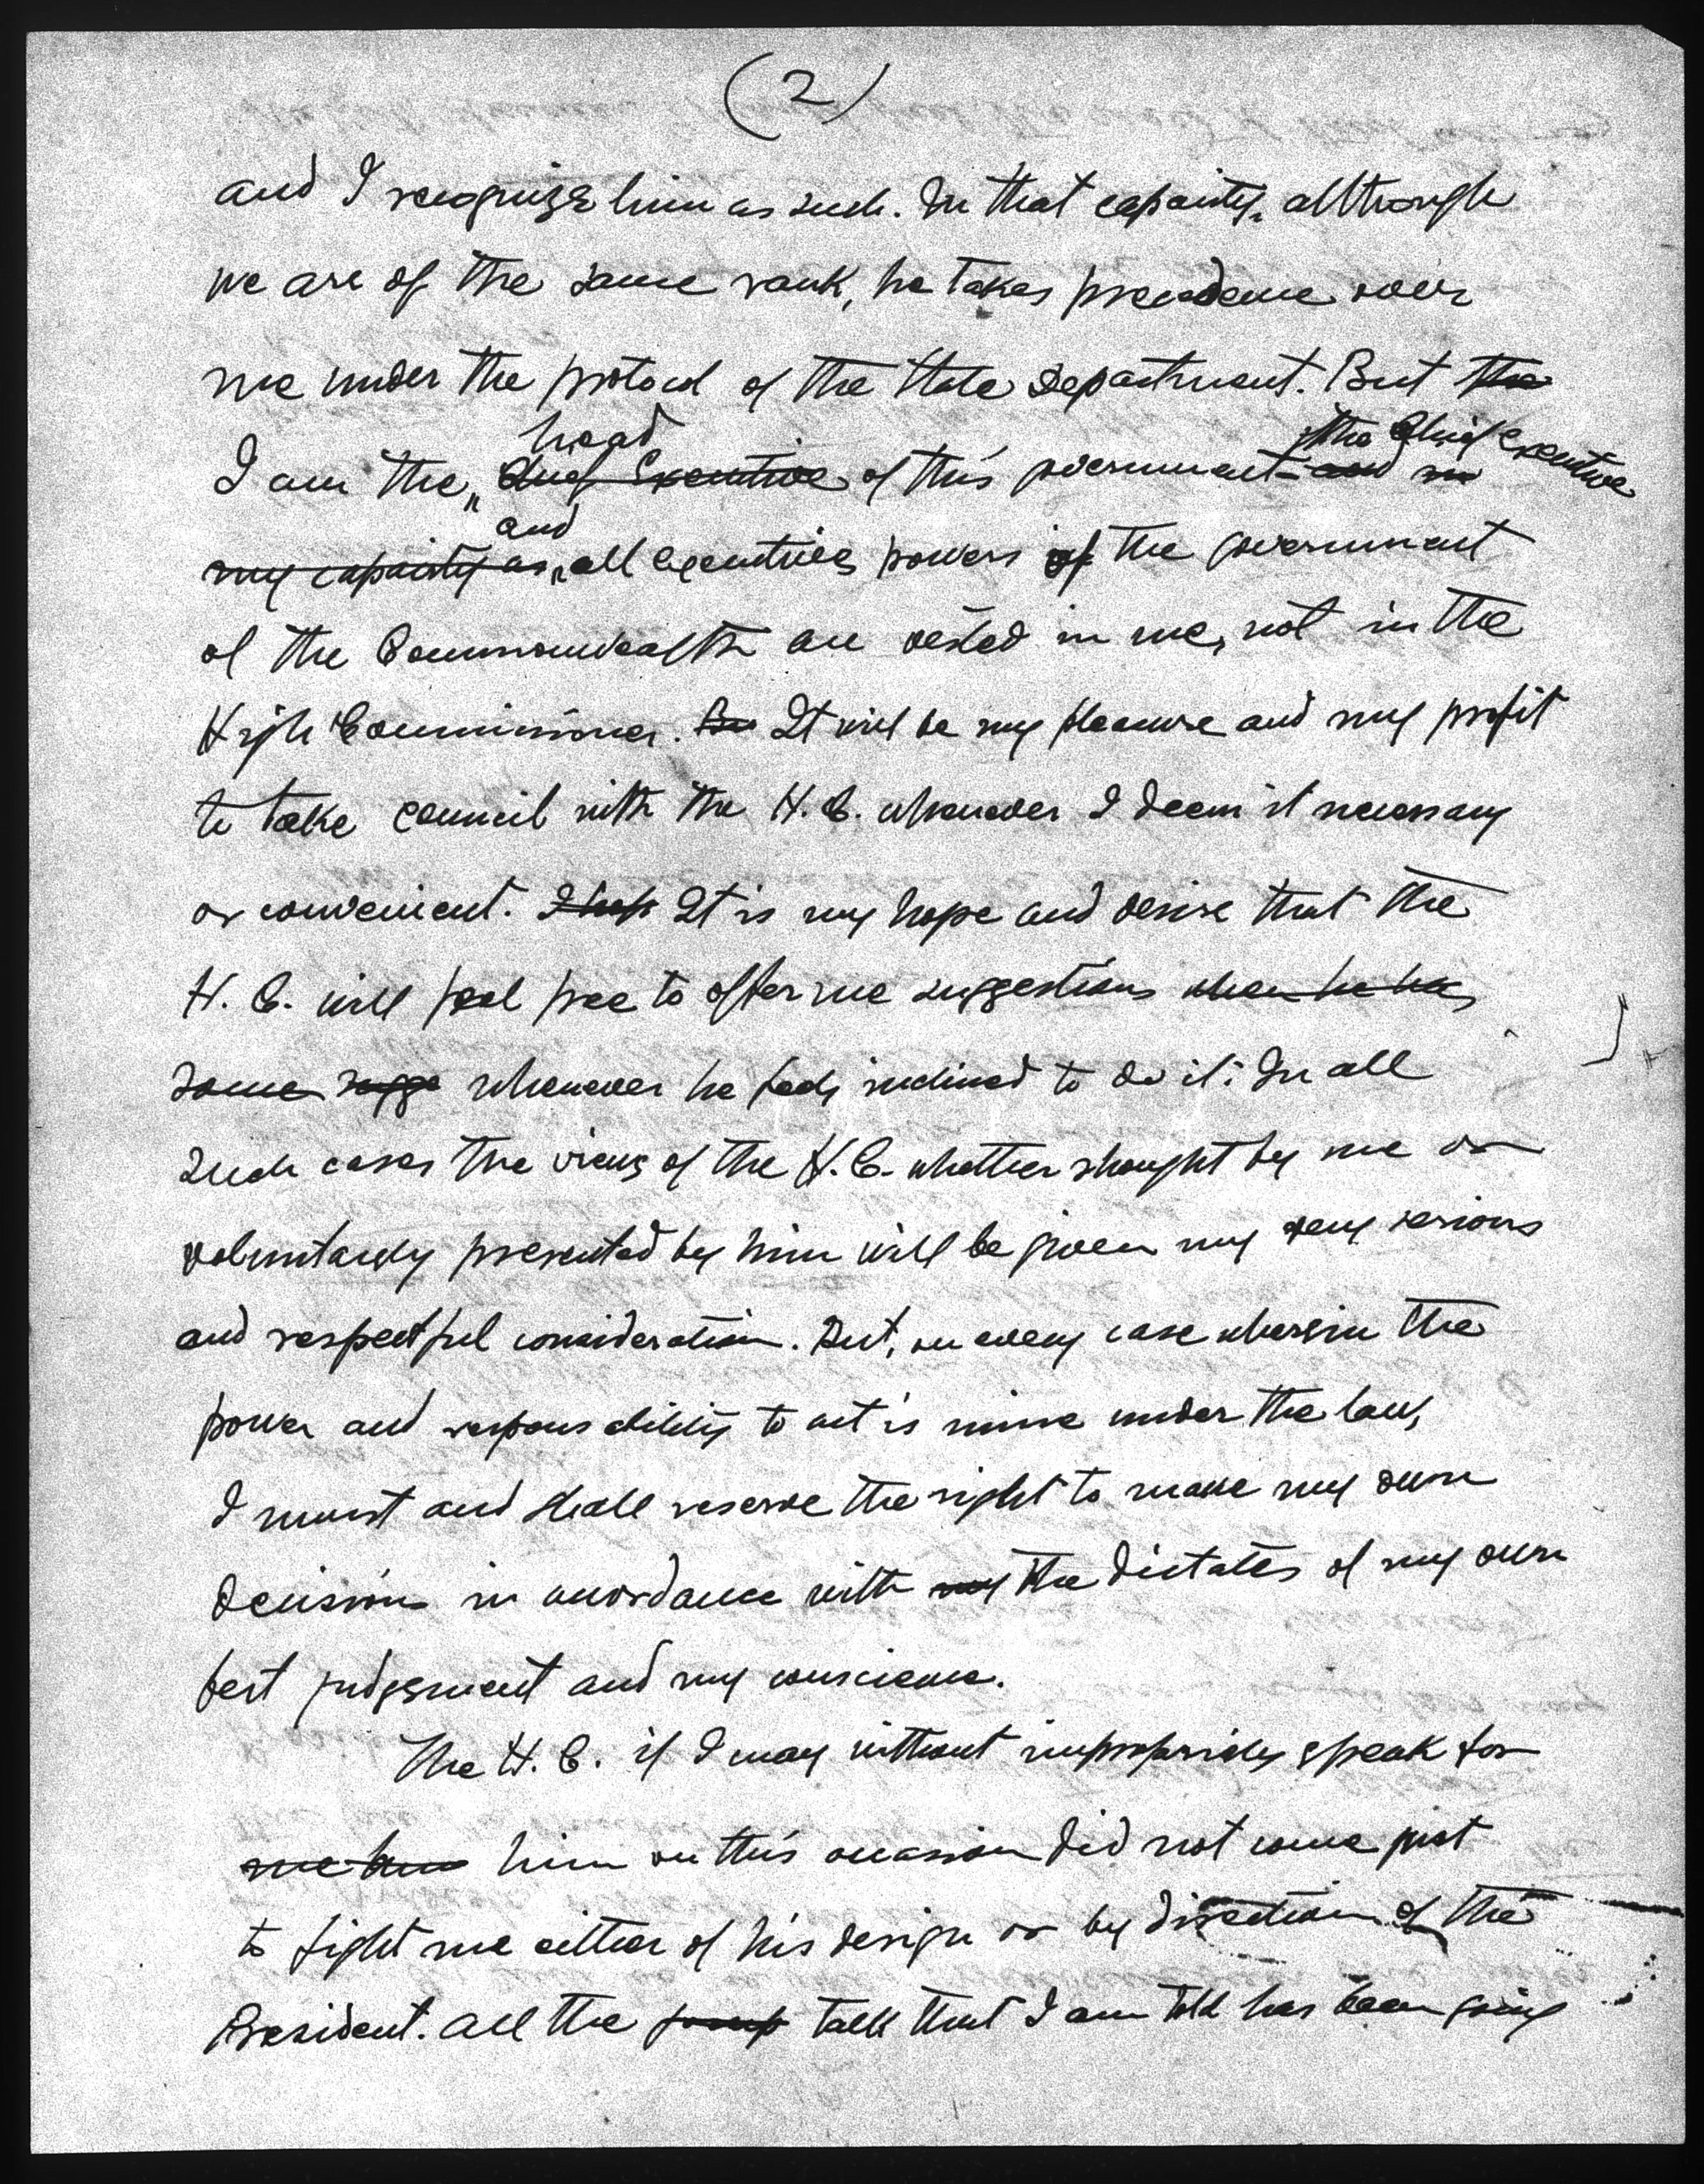 (2)
and I recognize him as such. In that capacity, although
we are of the same rank, he takes precedence over
me under the protocol of the State Department. But the
head the Chief Executive
I am the Chief Executive of this government - and in
and
my capacity as all executive powers of the government
of the Commonwealth are vested in me, not in the
High Commissioner. But It will be my pleasure and my profit
to take council with the H. C. whenever I deem it necessary
or convenient. I hope It is my hope and desire that the
H. C. will feel free to offer me suggestions when he has
some sugge whenever he feels inclined to do it. In all
such cases the views of the H. C. whether shought by me or
voluntarily presented by him will be given my very serious
and respectful consideration. But, in every case wherein the
power and responsability to act is mine under the law,
I must and shall reserve the right to make my own
decisions in accordance with my the dictates of my own
best judgement and my conscience.
The H. C. if I may without impropriety speak for
me him on this occasion did not come just
to fight me either of his design or by direction of the
President. All the gossip talk that I am told has been going